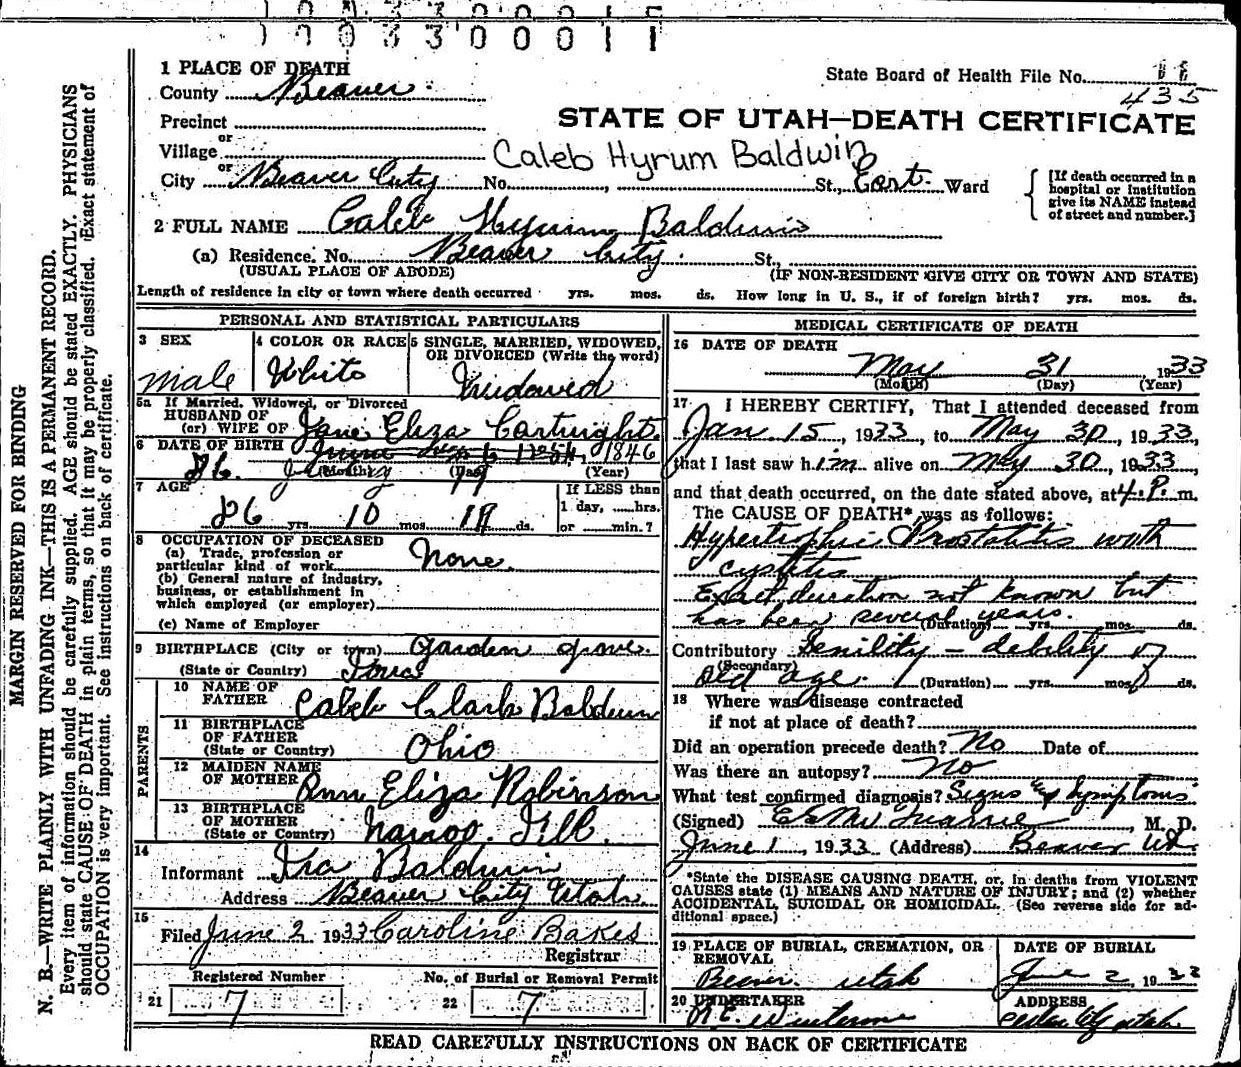 1 0 0 3 3 0 0 0 1 1
1 PLACE OF DEATH
County Beaver
State Board of Health File No. 11
435
Precinct
STATE OF UTAH—DEATH CERTIFICATE
or
Village
Caleb Hyrum Baldwin
or
City Beaver City No. , St., East. Ward
[If death occurred in a
hospital or institution
give its NAME instead
of street and number.]
2 FULL NAME Caleb Hyrum Baldwin
(a) Residence. No. Beaver City. St.,
(USUAL PLACE OF ABODE) (IF NON-RESIDENT GIVE CITY OR TOWN AND STATE)
Length of residence in city or town where death occurred yrs. mos. ds. How long in U. S., if of foreign birth? yrs. mos. ds.
PERSONAL AND STATISTICAL PARTICULARS
3 SEX
male
4 COLOR OR RACE
White
5 SINGLE, MARRIED, WIDOWED,
OR DIVORCED (Write the word)
Widowed
5a If Married, Widowed, or Divorced
HUSBAND OF
(or) WIFE OF Jane Eliza Cartwright
6 DATE OF BIRTH 1846
86. July 19
(Month) (Day) (Year)
7 AGE
86 yrs 10 mos 19 ds.
If LESS than
1 day, hrs.
or min.?
8 OCCUPATION OF DECEASED
(a) Trade, profession or
particular kind of work None.
(b) General nature of industry,
business, or establishment in
which employed (or employer)
(c) Name of Employer
9 BIRTHPLACE (City or town) Garden Grove.
(State or Country) Iowa
PARENTS
10 NAME OF
FATHER Caleb Clark Baldwin
11 BIRTHPLACE
OF FATHER
(State or Country) Ohio
12 MAIDEN NAME
OF MOTHER Ann Eliza Robinson
13 BIRTHPLACE
OF MOTHER
(State or Country) Nauvoo. Ill.
14
Informant Ira Baldwin
Address Beaver City Utah
15
Filed June 2 1933 Caroline Bakes
Registrar
Registered Number No. of Burial or Removal Permit
21 7 22 7
MEDICAL CERTIFICATE OF DEATH
16 DATE OF DEATH
May 31 , 1933
(Month) (Day) (Year)
17 I HEREBY CERTIFY, That I attended deceased from
Jan 15, 1933, to May 30, 1933,
that I last saw him alive on May 30, 1933,
and that death occurred, on the date stated above, at 4.P. m.
The CAUSE OF DEATH* was as follows:
Hypertrophic Prostatitis with
cystitis
Exact duration not known but
has been several years.
(Duration) yrs. mos. ds.
Contributory Senility — debility of
(Secondary)
old age. (Duration) yrs. mos. ds.
18 Where was disease contracted
if not at place of death?
Did an operation precede death? No Date of
Was there an autopsy? No
What test confirmed diagnosis? Signs & Symptoms
(Signed) , M. D.
June 1, 1933 (Address) Beaver Ut.
*State the DISEASE CAUSING DEATH, or, in deaths from VIOLENT
CAUSES state (1) MEANS AND NATURE OF INJURY; and (2) whether
ACCIDENTAL, SUICIDAL OR HOMICIDAL. (See reverse side for ad-
ditional space.)
19 PLACE OF BURIAL, CREMATION, OR
REMOVAL
Beaver. Utah
DATE OF BURIAL
June 2, 1933
20 UNDERTAKER
ADDRESS
Cedar City Utah.
READ CAREFULLY INSTRUCTIONS ON BACK OF CERTIFICATE
MARGIN RESERVED FOR BINDING
N. B.—WRITE PLAINLY WITH UNFADING INK—THIS IS A PERMANENT RECORD.
Every item of information should be carefully supplied. AGE should be stated EXACTLY. PHYSICIANS
should state CAUSE OF DEATH in plain terms, so that it may be properly classified. Exact statement of
OCCUPATION is very important. See instructions on back of certificate.